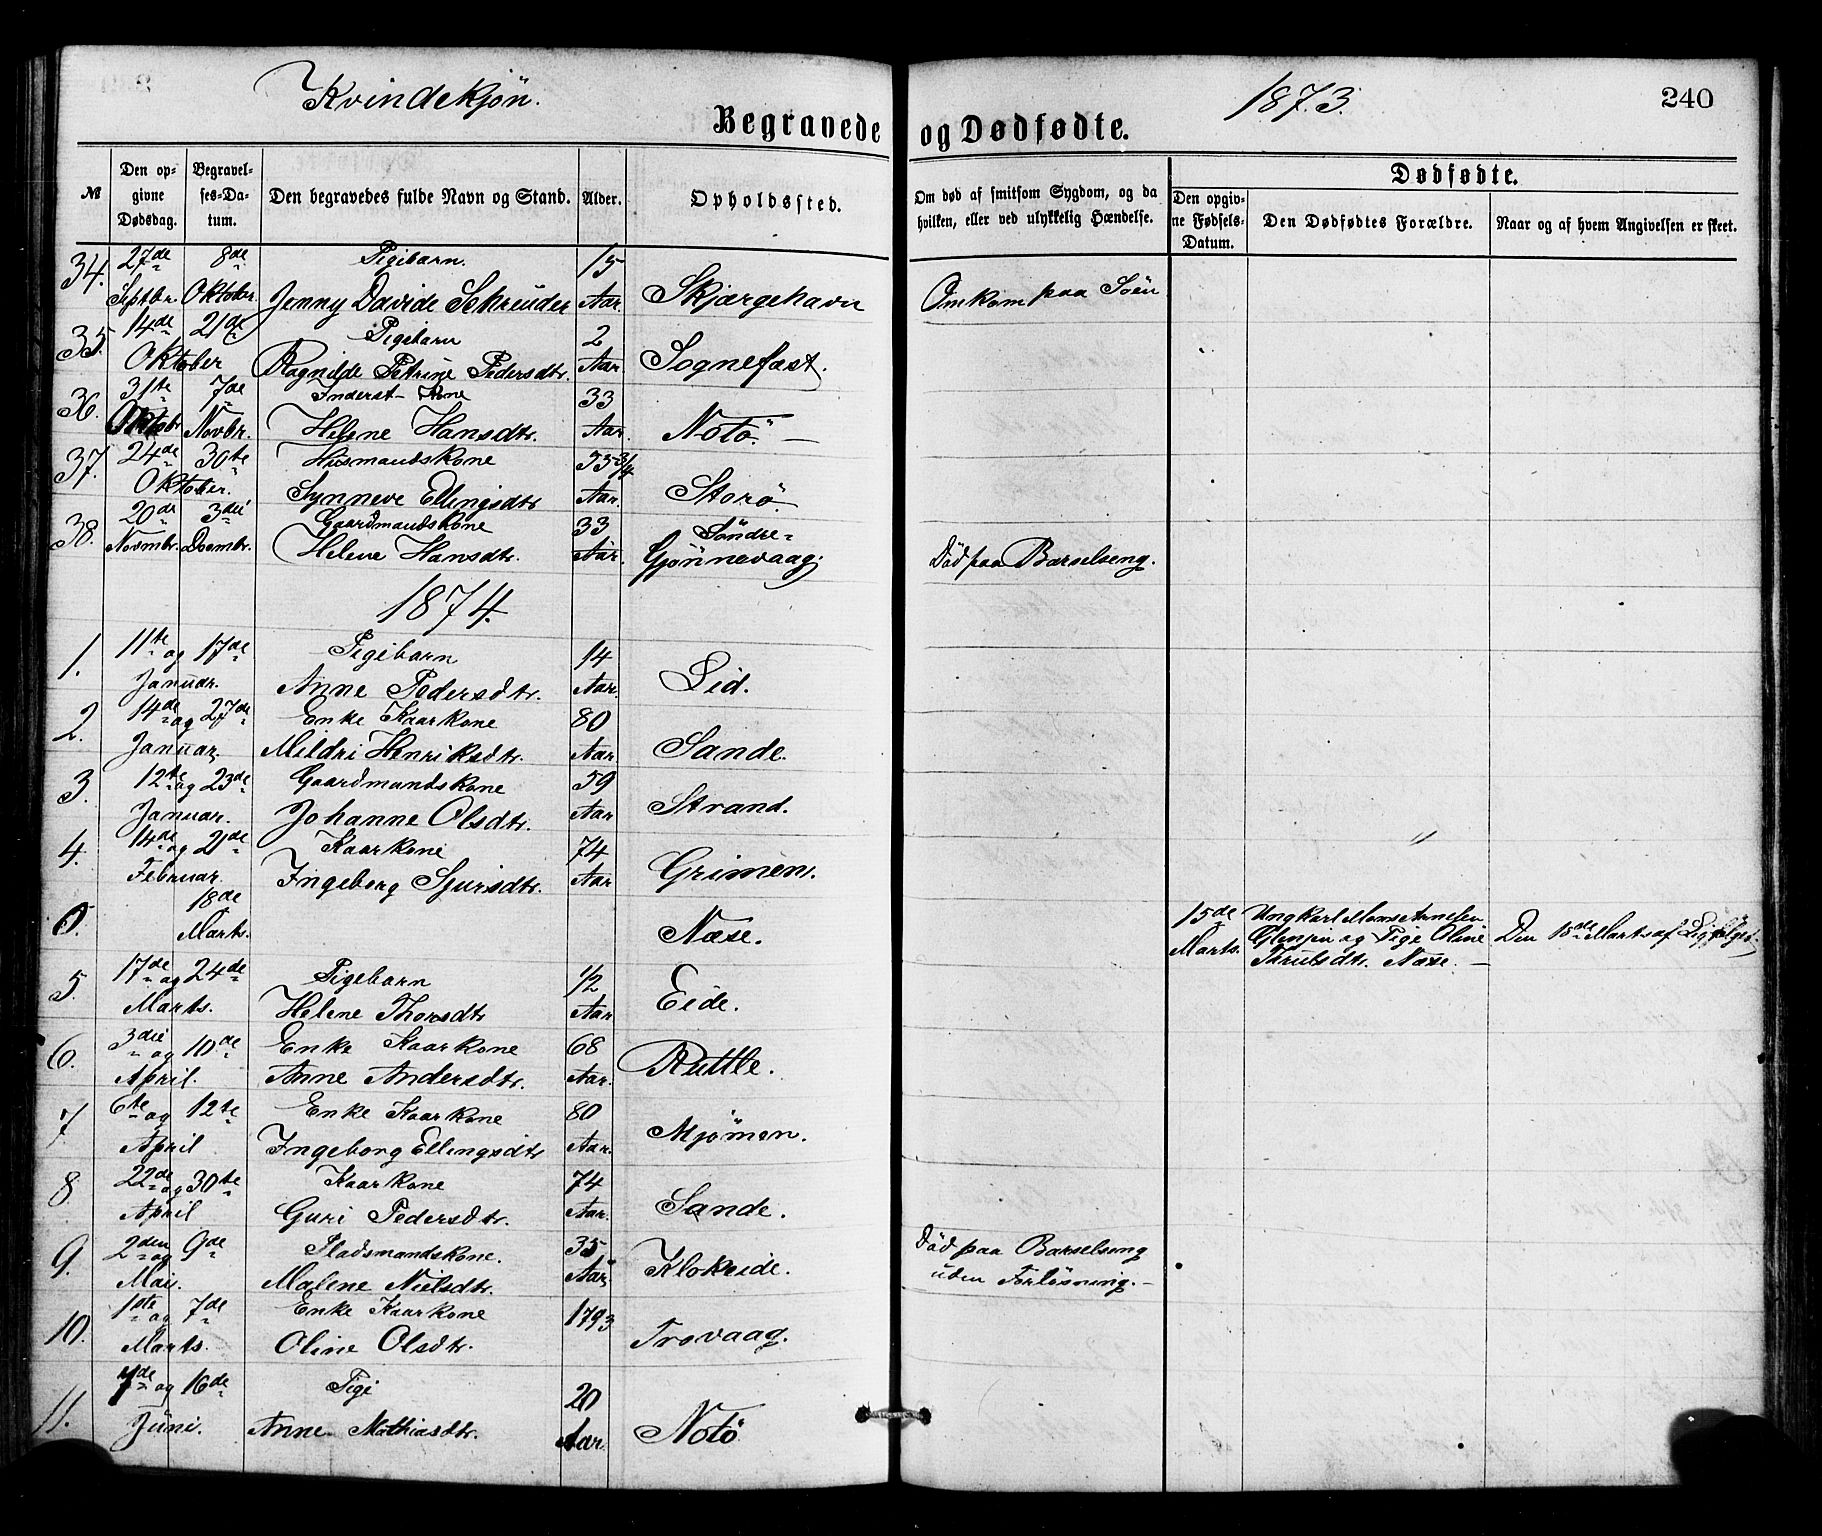 Kvindekjön.
1873.
240
Begravede og Dødfødte.
№
Den opgivne Dødsdag.
Begravelses-Datum.
Den begravedes fulde Navn og Stand.
Alder.
Opholdssted.
Om død af smitsom Sygdom, og da hvilken, eller ved ulykkelig Hændelse.
Dødfødte.
Den opgivne Fødsels-Datum.
Den Dødfødtes Forældre.
Naar og af hvem Angivelsen er skeet.
34. 27de 8de Pigebarn. 15
Septbr. Oktober. Jenny Davide Schreuder Aar. Skjærgehavn Omkom paa Söen
35. 14de 21de Pigebarn 2
Oktober Ragnilde Petrine Pedersdtr. Aar. Sognefæst.
36. 31te 7de Inderst-Kone 33
Oktobr Novbr. Helene Hansdtr. Aar. Notö. —
37. 24de 30te Husmandskone 53 3/4
Oktober. Synneve Ellingsdtr Aar. Storö.
38. 20de 3die Gaardmandskone 33 Söndre-
Novmbr. Decmbr. Helene Hansdtr. Aar. Gjönnevaag. Död paa Barselseng.
1874.
1. 11te og 17de Pigebarn 14
Januar. Anne Pedersdtr. Aar. Lid.
2. 14de og 27de Enke Kaarkone 80
Januar. Mildri Henriksdtr. Aar Sande.
3. 12te og 23de Gaardmandskone 59
Januar. Johanne Olsdtr. Aar Strand.
4. 14de og 21de Kaarkone 74
Februar. Ingeborg Sjursdtr. Aar Grimen.
0. 18de Marts. Næse. 15de Marts. Ungkarl Mons Arnesen
og Pige Oline Den 15de Marts af Ligfölget.
Næse. —
5. 17de og 24de Pigebarn 1/2
Marts. Helene Thorsdtr Aar Eide.
6. 3die og 10de Enke Kaarkone 68
April. Anne Andersdtr. Aar. Rutle.
7 6te og 12te Enke Kaarkone 80
April Ingeborg Ellingsdtr Aar. Mjömen.
8 22de og 30te Kaarkone 74
April Guri Pedersdtr. Aar. Sande.
9. 2den og 9de Pladsmandskone. 35 Död paa Barselseng
Mai. Malene Nielsdtr. Aar Klokeide. uden Forlösning. —
10. 1ste og 7de Enke Kaarkone 1793
Marts. Oline Olsdtr. Trovaag.
11. 7de og 16de Pige 20
Juni. Anne Mathiasdtr. Aar. Notö